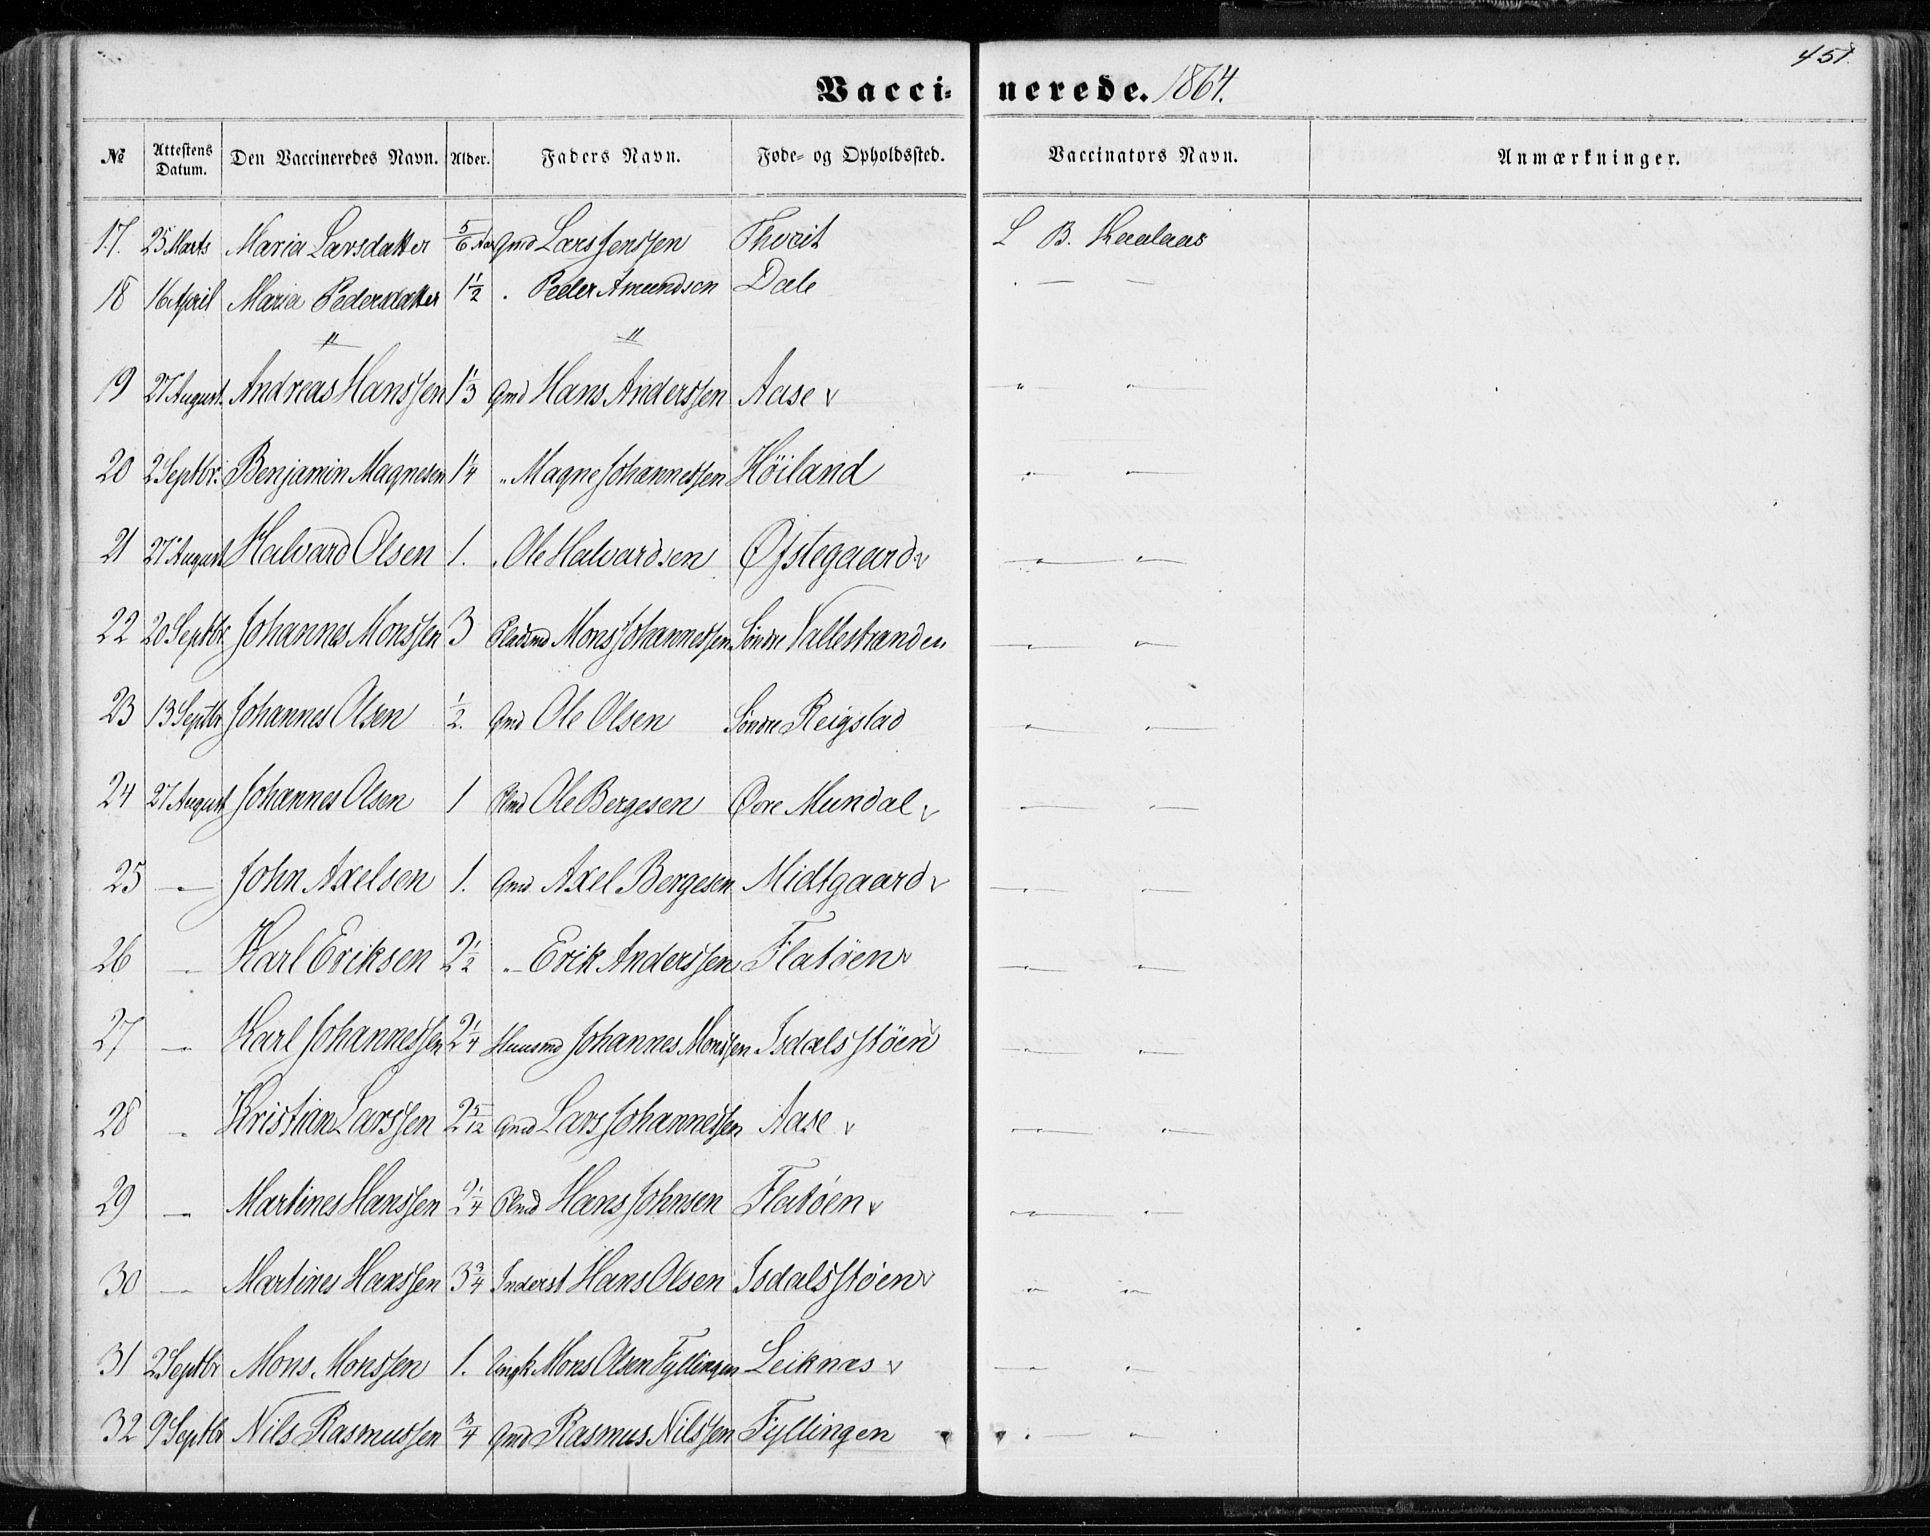 451.
Vacci- nerede. 1864.
№ Attestens Datum. Den Vaccineredes Navn. Alder. Faders Navn. Føde- og Opholdssted. Vaccinators Navn. Anmærkninger.
17. 25 Marts Maria Larsdatter 5/6 Aar Gmd Lars Jenssen L B. Kaalaas
18 16 April Maria Pedersdatter 1 1/2 . Peder Amundsen Dale . — —
" "
19 27 August. Andreas Hanssen 1 1/3 Gmd Hans Anderssen Aase v " — —
20 2 Septbr. Benjamin Magnesen 1 1/4 " Magne Johannessen Höiland — —
21 27 August Halvard Olsen 1. " Ole Halvardsen Øfstegaard v — —
22 20 Septbr Johannes Monssen 3 Pladsmd Mons Johannessen Söndre Vallestranden — —
23 13 Septbr Johannes Olsen 1/2. Gmd Ole Olsen Söndre Reigstad — —
24 27 August Johannes Olsen 1 Plmd Ole Bergesen Øvre Mundal v — —
25 — John Axelsen 1. Gmd. Axel Bergesen Midtgaard v — —
26 — Karl Eriksen 2 1/2 " Erik Anderssen Flatöen v — —
27 — Karl Johannessen 2 1/4 Huusmd Johannes Monssen Isdalsstöen v — —
28 " Kristian Larssen 2 5/12 Gmd Lars Johannessen Aase v — —
29 — Martines Hanssen 2 1/4 Plmd Hans Johnsen Flatöen v — —
30 — Martines Hanssen 3 3/4 Inderst Hans Olsen Isdalsstöen v — —
31 2 Septbr Mons Monssen 1. Ungk Mons Olsen Fyllingen Leiknæs v — —
32 9 Septbr Nils Rasmussen 3/4 Gmd Rasmus Nilssen Fyllingen — —